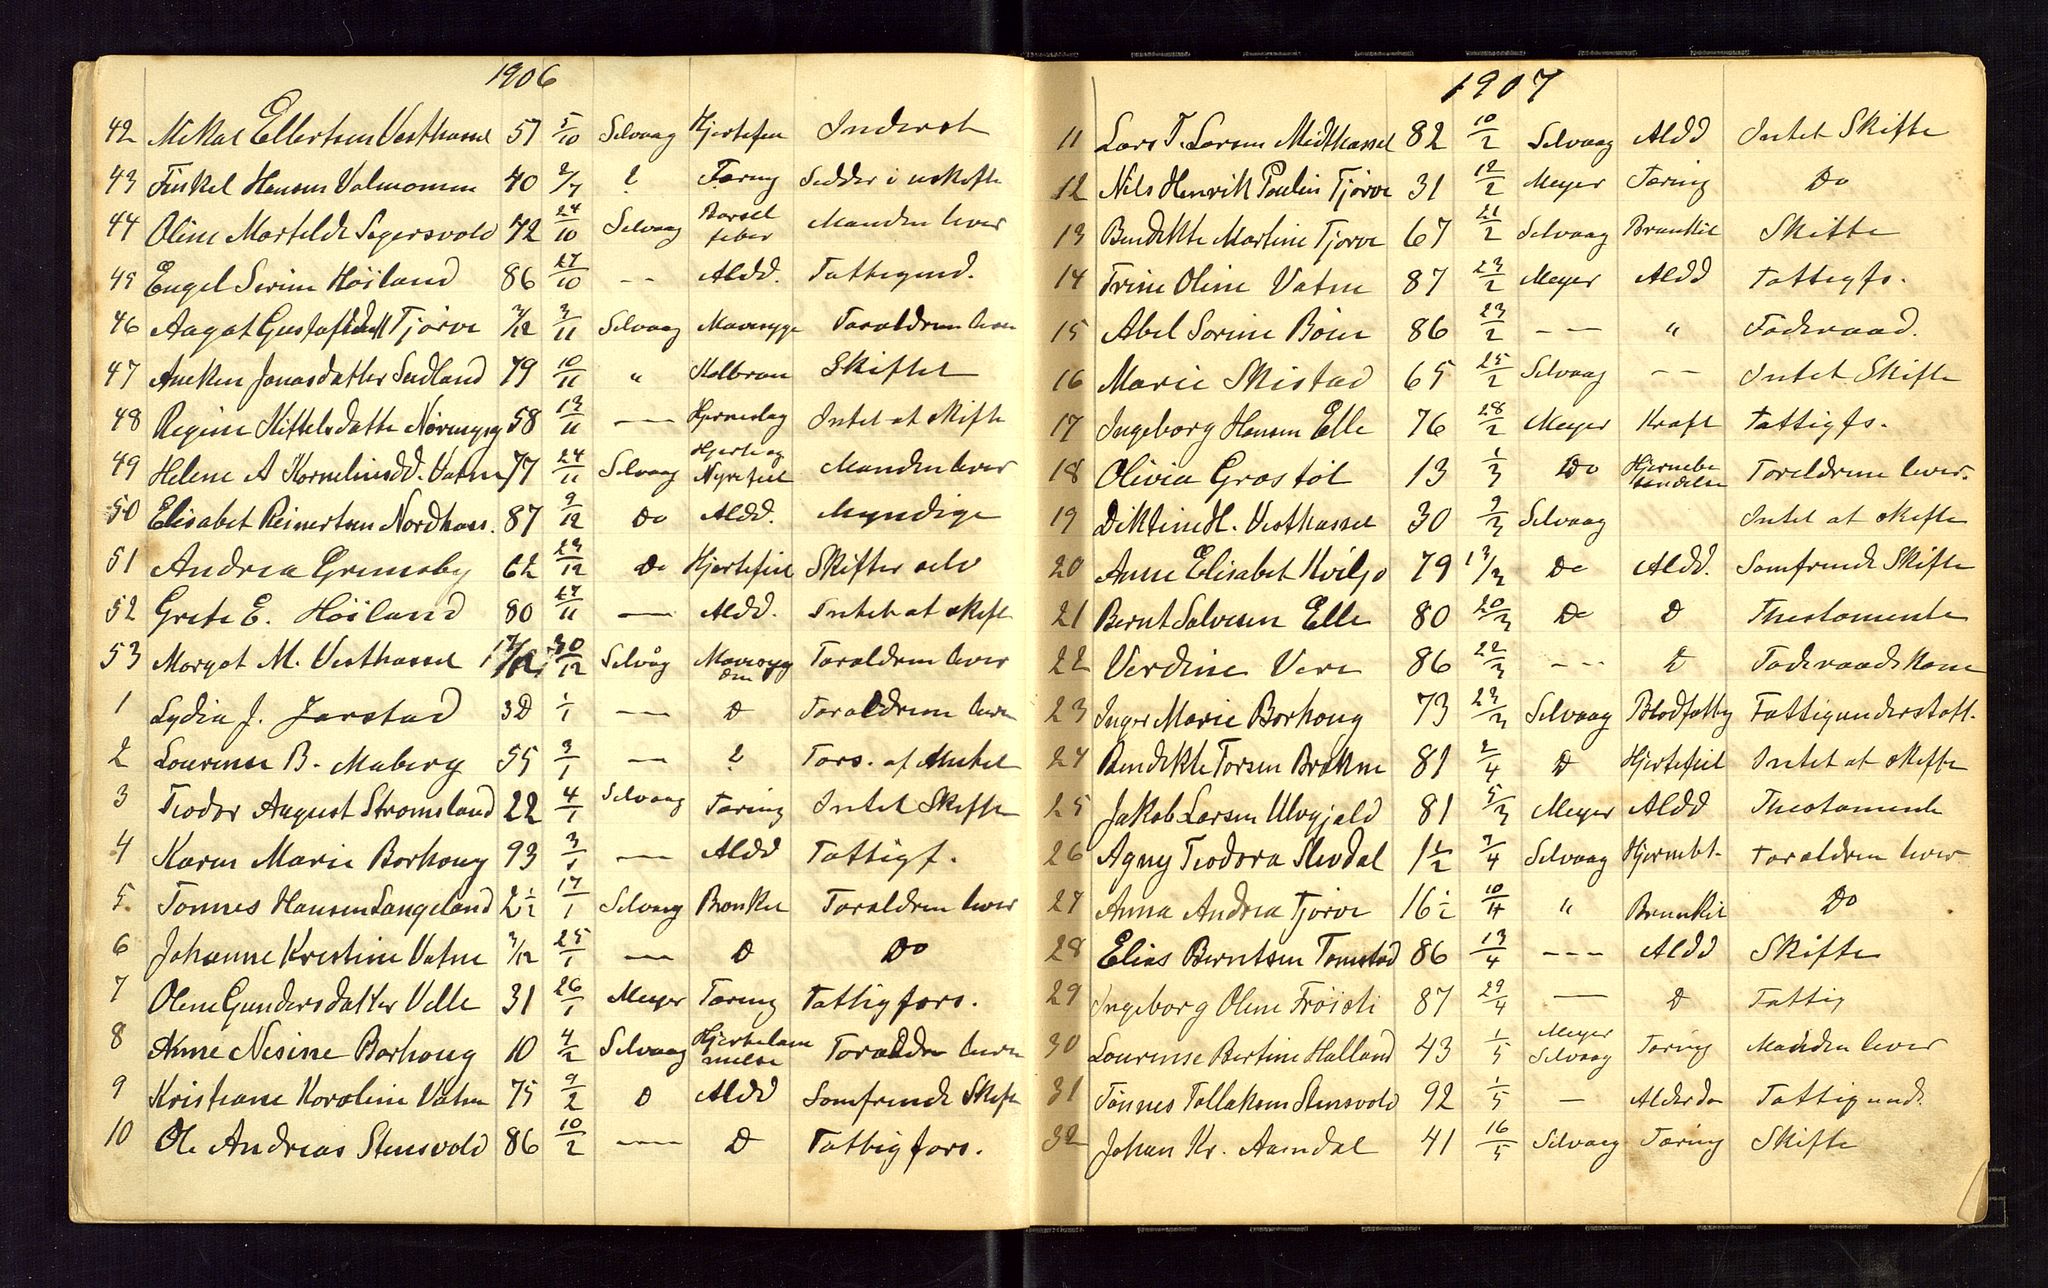 1906
42 Mikal Ellertsen Vesthassel 51 5/10 Selvaag Hjertefeil Inderst
43 Hansen 40 2/7 ? Tæring Sidder i uskifte
44 Oline Segersvold 42 24/10 Selvaag Barsel feber Manden lever
45 Engel Serine Høiland 86 27/10 -- Aldd. Fattigund.
46 Aagot Tjørve 7/12 3/11 Selvaag Mavesyge Foraldrene lever
47 Aneken Jonasdatter Sudland 79 10/11 " Koldbran Skiftet
48 Regine Kittelsdatter 58 13/11 — Hjerneslag Intet at skifte
49 Helene A Korneliusdd. Vatne 77 24/11 Selvaag Hjerte og Nyrefeil Manden lever
50 Elisabet Reinertsen Nordhass. 87 9/12 Do Aldd. Myndige
51 Andrea Grimsby 62 23/12 Do Hjertefeil Skifter selv
52 Grete E. Høiland 80 27/11 — Aldd. Intet at skifte
53 Margot M. Vesthassel 30/12 Selvåg Mavesyg dom Foraldrene lever
1 Lydia J. Jarstad 3D 1/1 — D Foraldrene lever
2 Lourense B. Maberg 55 3/1 — ? Fors. af Amtet
3 Teodor August Stromsland 22 4/1 Selvaag Tæring Intet Skifte
4 Karen Marie Borhoug 93 3/1 — Aldd Fattigf.
5. Tonnes Hansen Langeland 2 1/2 17/1 Selvaag Bronkit Foraldrene lever
6 Johanne Kristine Vatne 3/12 25/1 — D Do
7 Olene Gundersdatter Velle 31 26/1 Meyer Tæring Fattigfors.
8 Anne Nesine Borhoug 10 4/2 Selvaag Hjertelam melse Foraldre lever
9 Kristiane Karoline Vatne 75 9/2 D Aldd Samfrende Skifte
10 Ole Andreas Stensvold 86 10/2 — D Fattigfors.
1907
11 Lars T. Larsen Midthassel 82 10/2 Selvaag Aldd Intet Skifte
12 Nils Henrik Poulin Tjørve 31 12/2 Meyer Tæring Do
13 Bendikte Martine Tjørve 67 21/2 Selvaag Brunkit Skifte
14 Trine Oline Vatne 87 23/2 Meyer Aldd Fattigfs.
15 Abel Sorine Böen 86 23/2 — — " Føderaad.
16 Marie Skistad 65 25/2 Selvaag -- Intet Skifte
17 Ingeborg Hansen Elle 76 28/2 Meyer Kræft Fattigfs.
18 Olivia Grostöl 13 1/3 Do Hjernebe tændelse Foreldrene lever.
19 Diktine H. Vesthassel 30 9/3 Selvaag Intet at skifte
20 Anne Elisabet Kviljo 79 13/3 Do Aldd. Samfrende Skifte
21 Bernt Salvesen Elle 80 20/3 Do D Thestamente
22 Verdine Vere 86 22/3 --- D Føderaadskone
23 Inger Marie Borhoug 73 23/3 Selvaag Blodfattig Fattigunderstøtt.
24 Bendikte Torsen Brækne 81 2/4 D Hjertefeil Intet at skifte
25 Jakob Larsen Ulvgjeld 81 5/3 Meyer Aldd Thestamente
26 Agny Teodora Slevdal 1 1/2 3/4 Selvaag Hjernebt. Foraldrene lever
27 Anna Andrea Tjørve 16 1/2 10/4 " Brunkit Do
28 Elias Berntsen Tomstad 86 13/4 --- Aldd Skifte
29 Ingeborg Olene Fröisti 87 29/4 — D Fattig
30 Lourense Bertine Halland 43 1/5 Meyer Selvaag Tæring Manden lever
31 Tönnes Tollaksen Stensvold 92 1/5 — Alderdom Fattigund.
32 Johan Kr. Aamdal 41 16/5 Selvaag Tæring Skifte